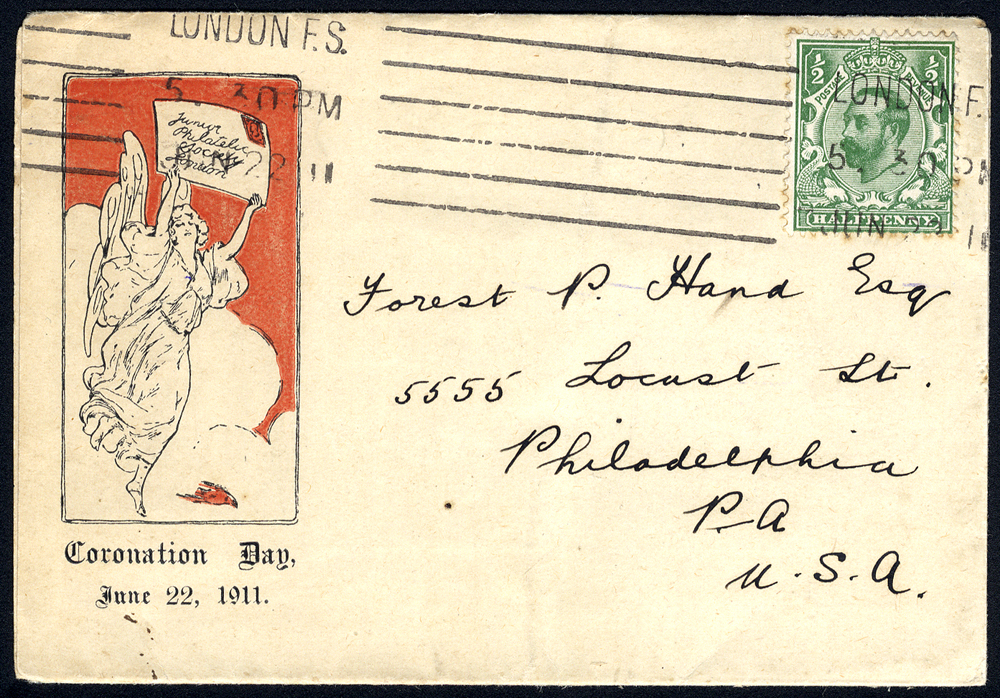 LONDON F.S.
5. 30 PM
JUN 22 11
Junior
Philatelic
Society
London
Coronation Day,
June 22, 1911.
½ ½
POSTAGE REVENUE
HALFPENNY
LONDON F.
5. 30 PM
JUN 22 11
Forest P. Hand Esq
5555 Locust St.
Philadelphia
P.A
U.S.A.